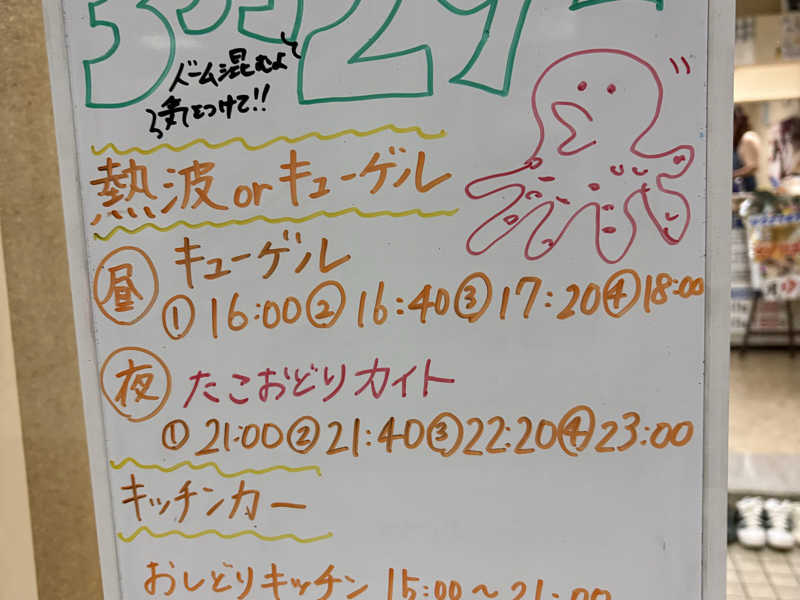 3月29
ドーム混むよ
気をつけて!!
熱波orキューゲル
昼 キューゲル
①16:00②16:40③17:20④18:00
夜 たこおどりカイト
①21:00②21:40③22:20④23:00
キッチンカー
おしどりキッチン 15:00～21:00